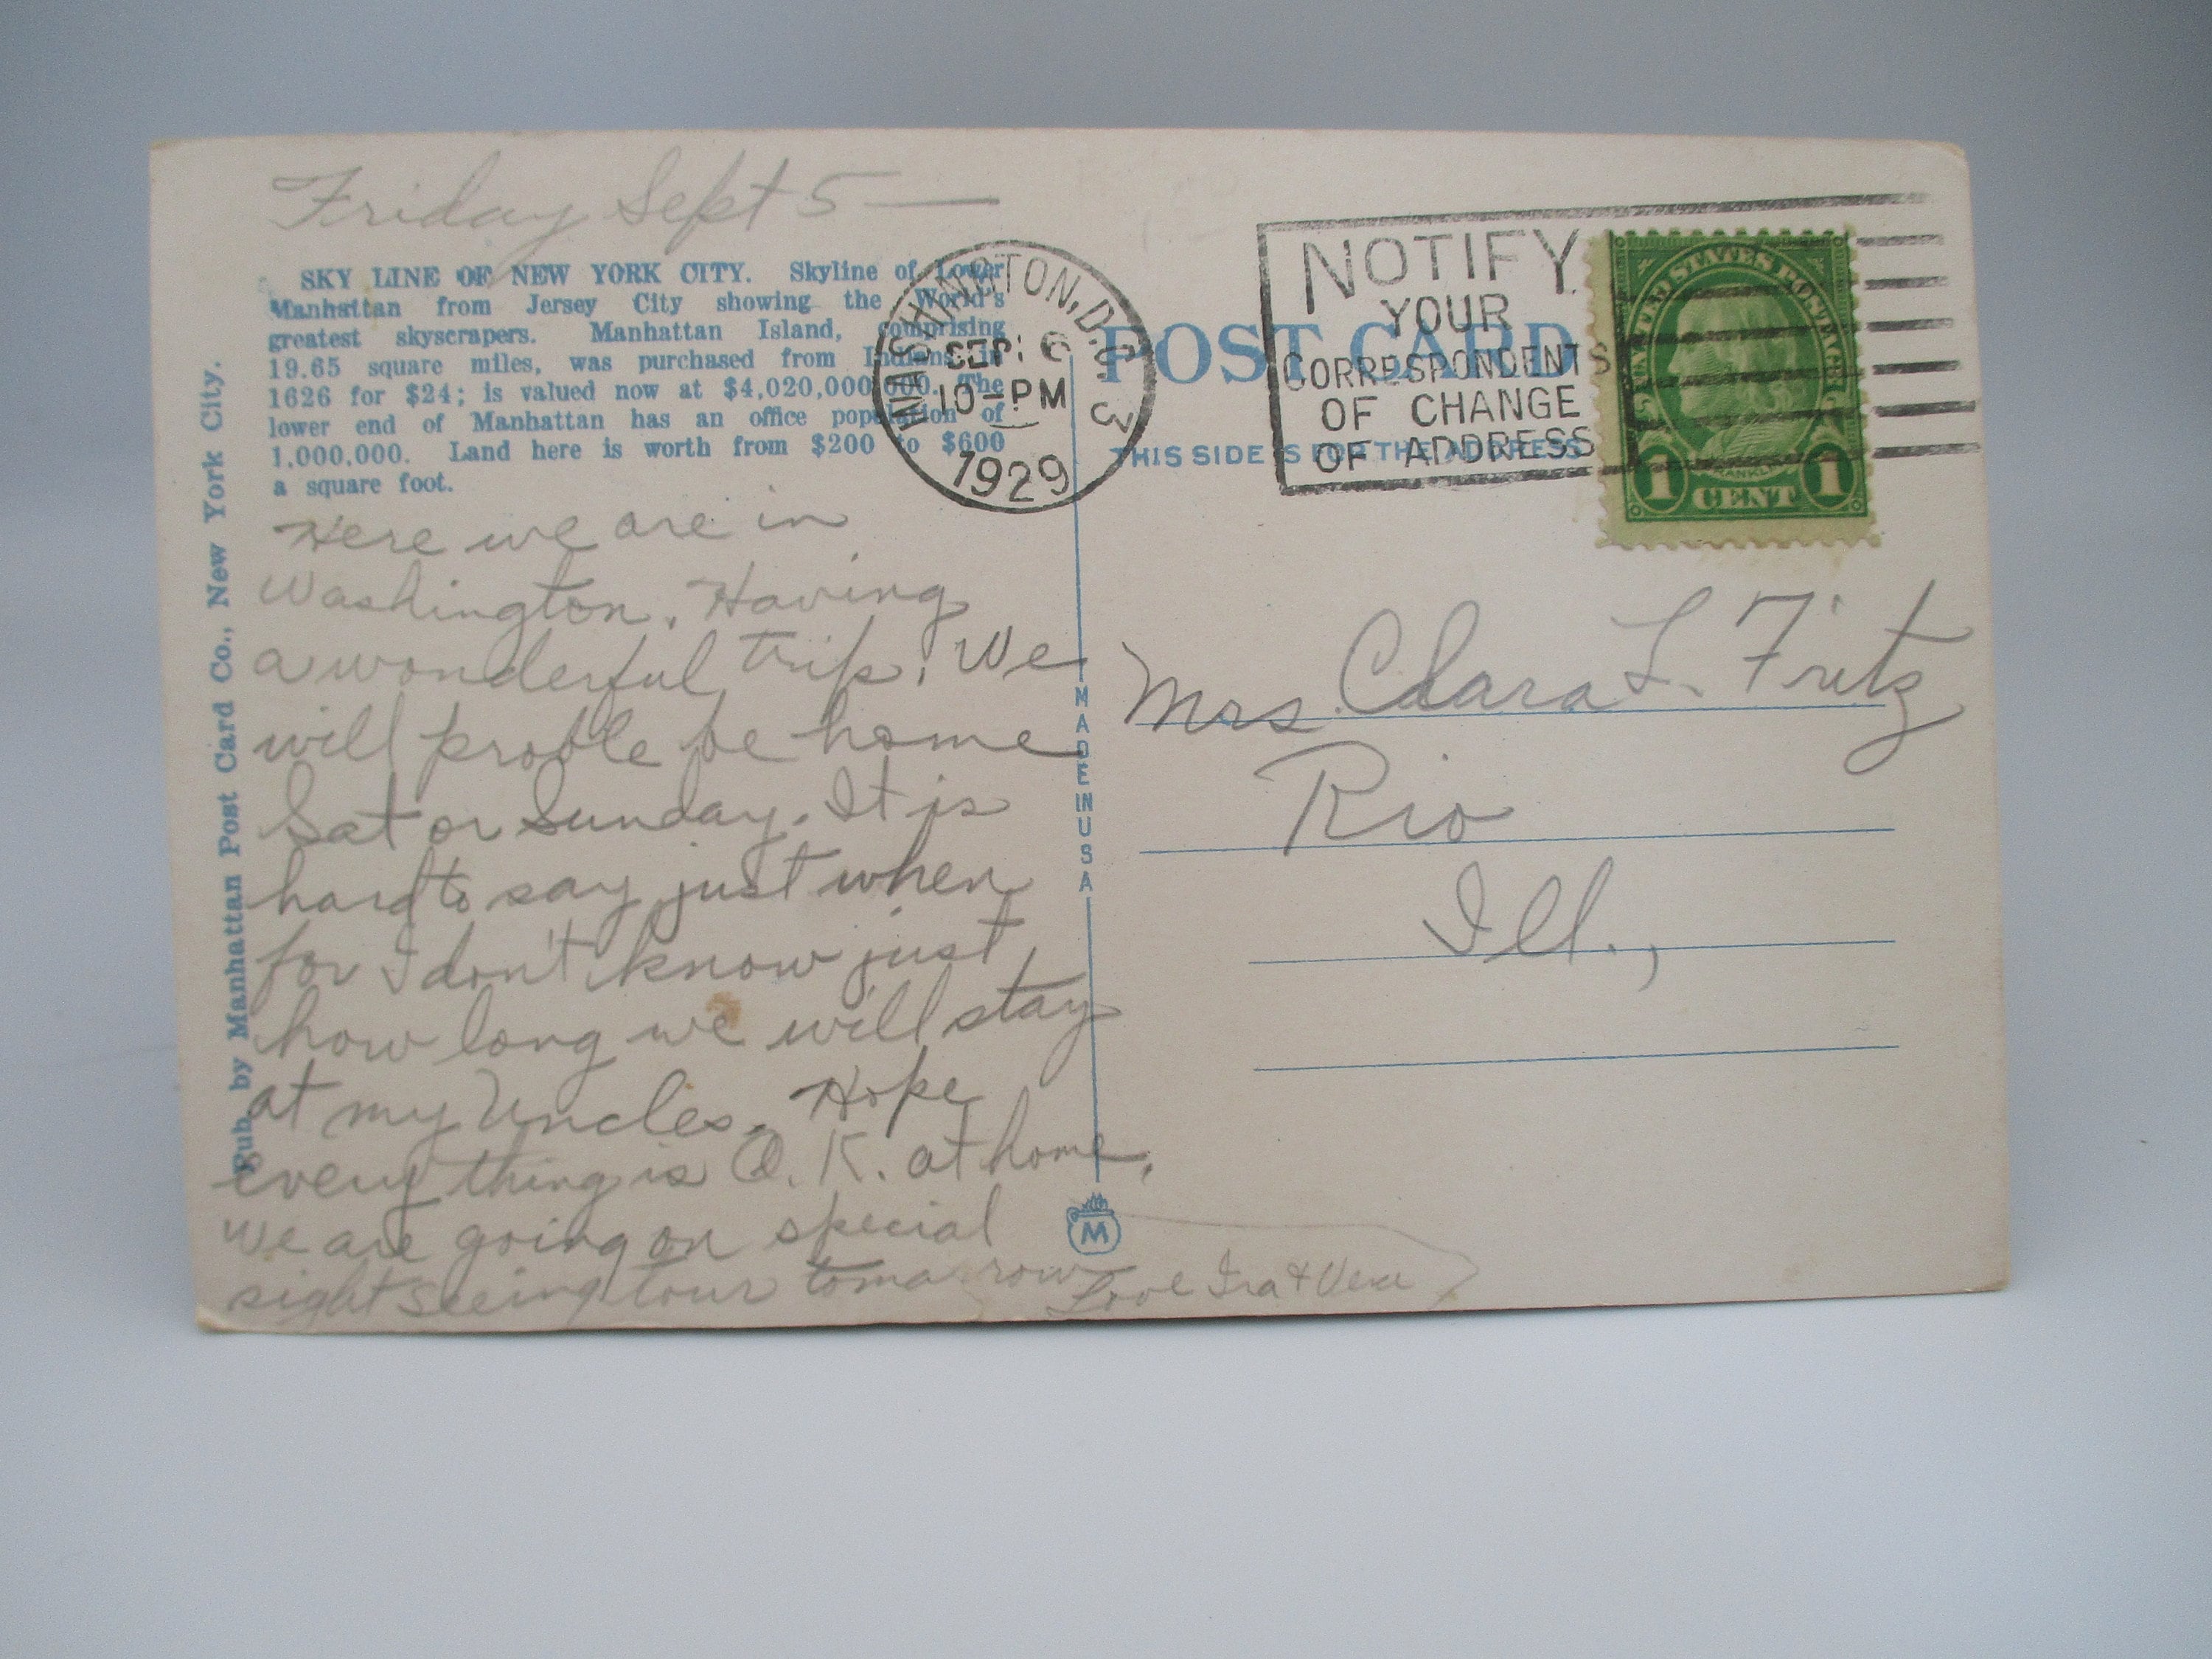 Friday Sept 5 —
SKY LINE OF NEW YORK CITY. Skyline of Lower
Manhattan from Jersey City showing the World's
greatest skyscrapers. Manhattan Island, comprising
19.65 square miles, was purchased from Indians in
1626 for $24; is valued now at $4,020,000,000. The
lower end of Manhattan has an office population of
1,000,000. Land here is worth from $200 to $600
a square foot.
Here we are in
Washington. Having
a wonderful trip. We
will proble be home
Sat or Sunday. It is
hard to say just when
for I don't know just
how long we will stay
at my Uncles. Hope
every thing is O. K. at home.
We are going on special
sight seeing tour tomorrow
Love Ira & Vera
Pub. by Manhattan Post Card Co., New York City.
WASHINGTON, D.C. 3
SEP 6
10-PM
1929
MADE IN USA
M
POST CARD
THIS SIDE IS FOR THE ADDRESS
NOTIFY
YOUR
CORRESPONDENTS
OF CHANGE
OF ADDRESS
UNITED STATES POSTAGE
FRANKLIN
1 CENT 1
Mrs. Clara L. Fritz
Rio
Ill.,